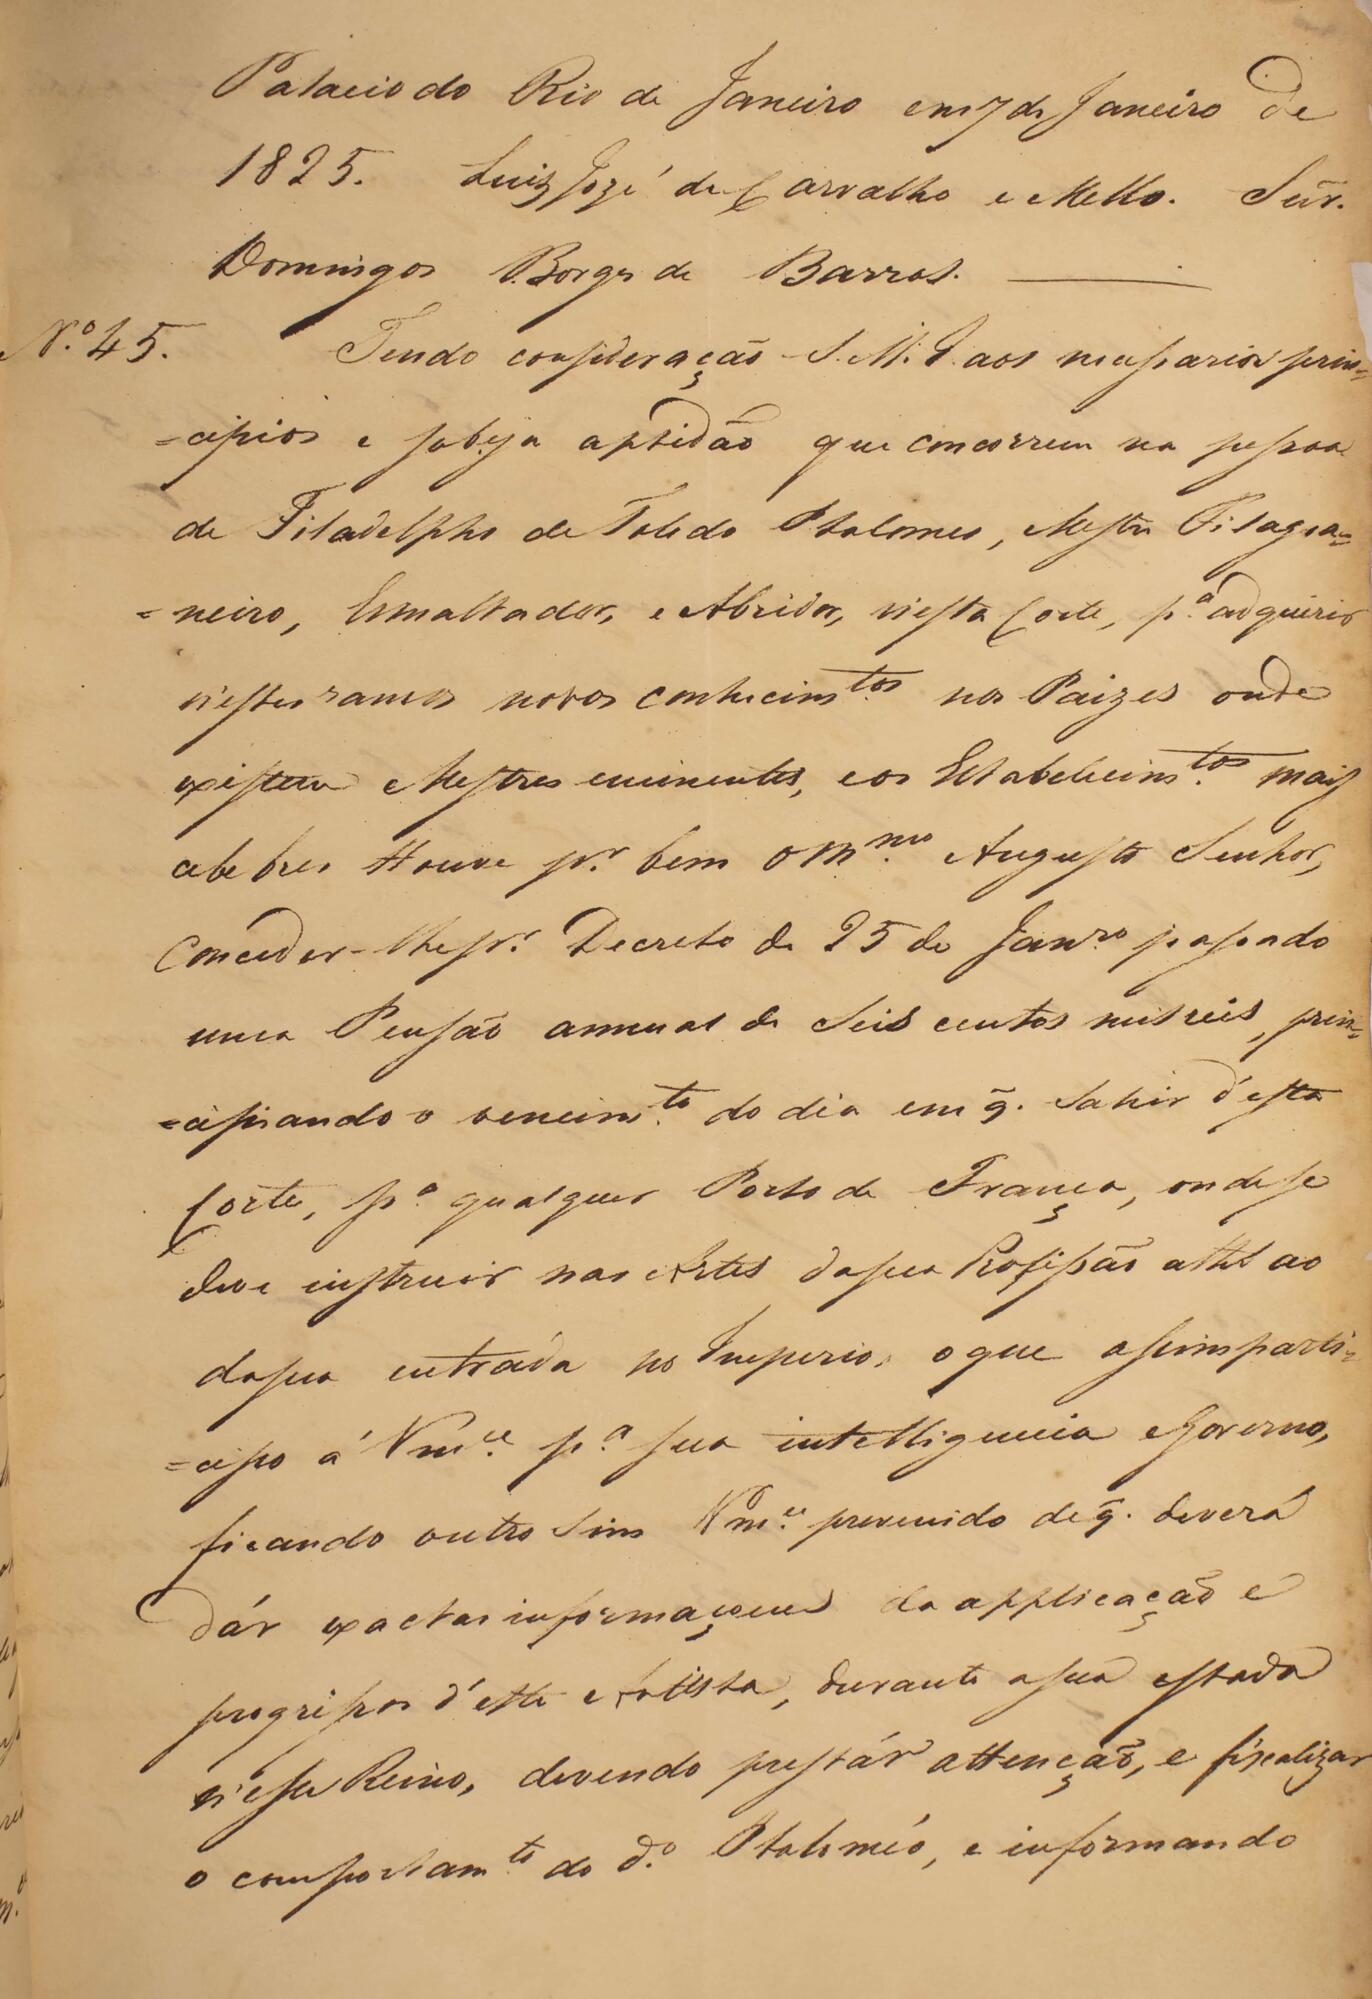 Palacio do Rio de Janeiro em 7 de Janeiro de
1825. Luiz Jozé de Carvalho e Mello. Snr.
Domingos Borges de Barros.
N.º 45. Tendo consideração S. M. I. aos necessarios prin=
=cipios e sobeja aptidão que concorrem na pessoa
de Filadelpho de Toledo Ptolomeo, Mestre Filagra=
=neiro, Esmaltador, e Abridor, n'esta Corte, p.ª adquirir
n'estes ramos novos conhecim.tos nos Paizes onde
existem Mestres eminentes, e os Estabelecim.tos mais
celebres Houve p.r bem o M.mo Augusto Senhor,
Conceder-lhe p.r Decreto de 25 de Jan.ro passado
uma Pensão annual de Seis centos mil reis, prin=
=cipiando o vencim.to do dia em q̃. sahir d'esta
Corte, p.ª qualquer Porto de França, onde se
deve instruir nas Artes da sua Profissão athé ao
da sua entrada no Imperio. o que assim parti=
=cipo á Vm.ce p.ª sua intelligencia e Governo,
ficando outro sim Vm.ce prevenido de q̃. deverá
dár exactas informaçoens da applicação e
progressos d'este Artista, durante a sua estada
n'esse Reino, devendo prestár attenção, e fiscalizar
o comportam.to do d.º Ptolomêo, e informando